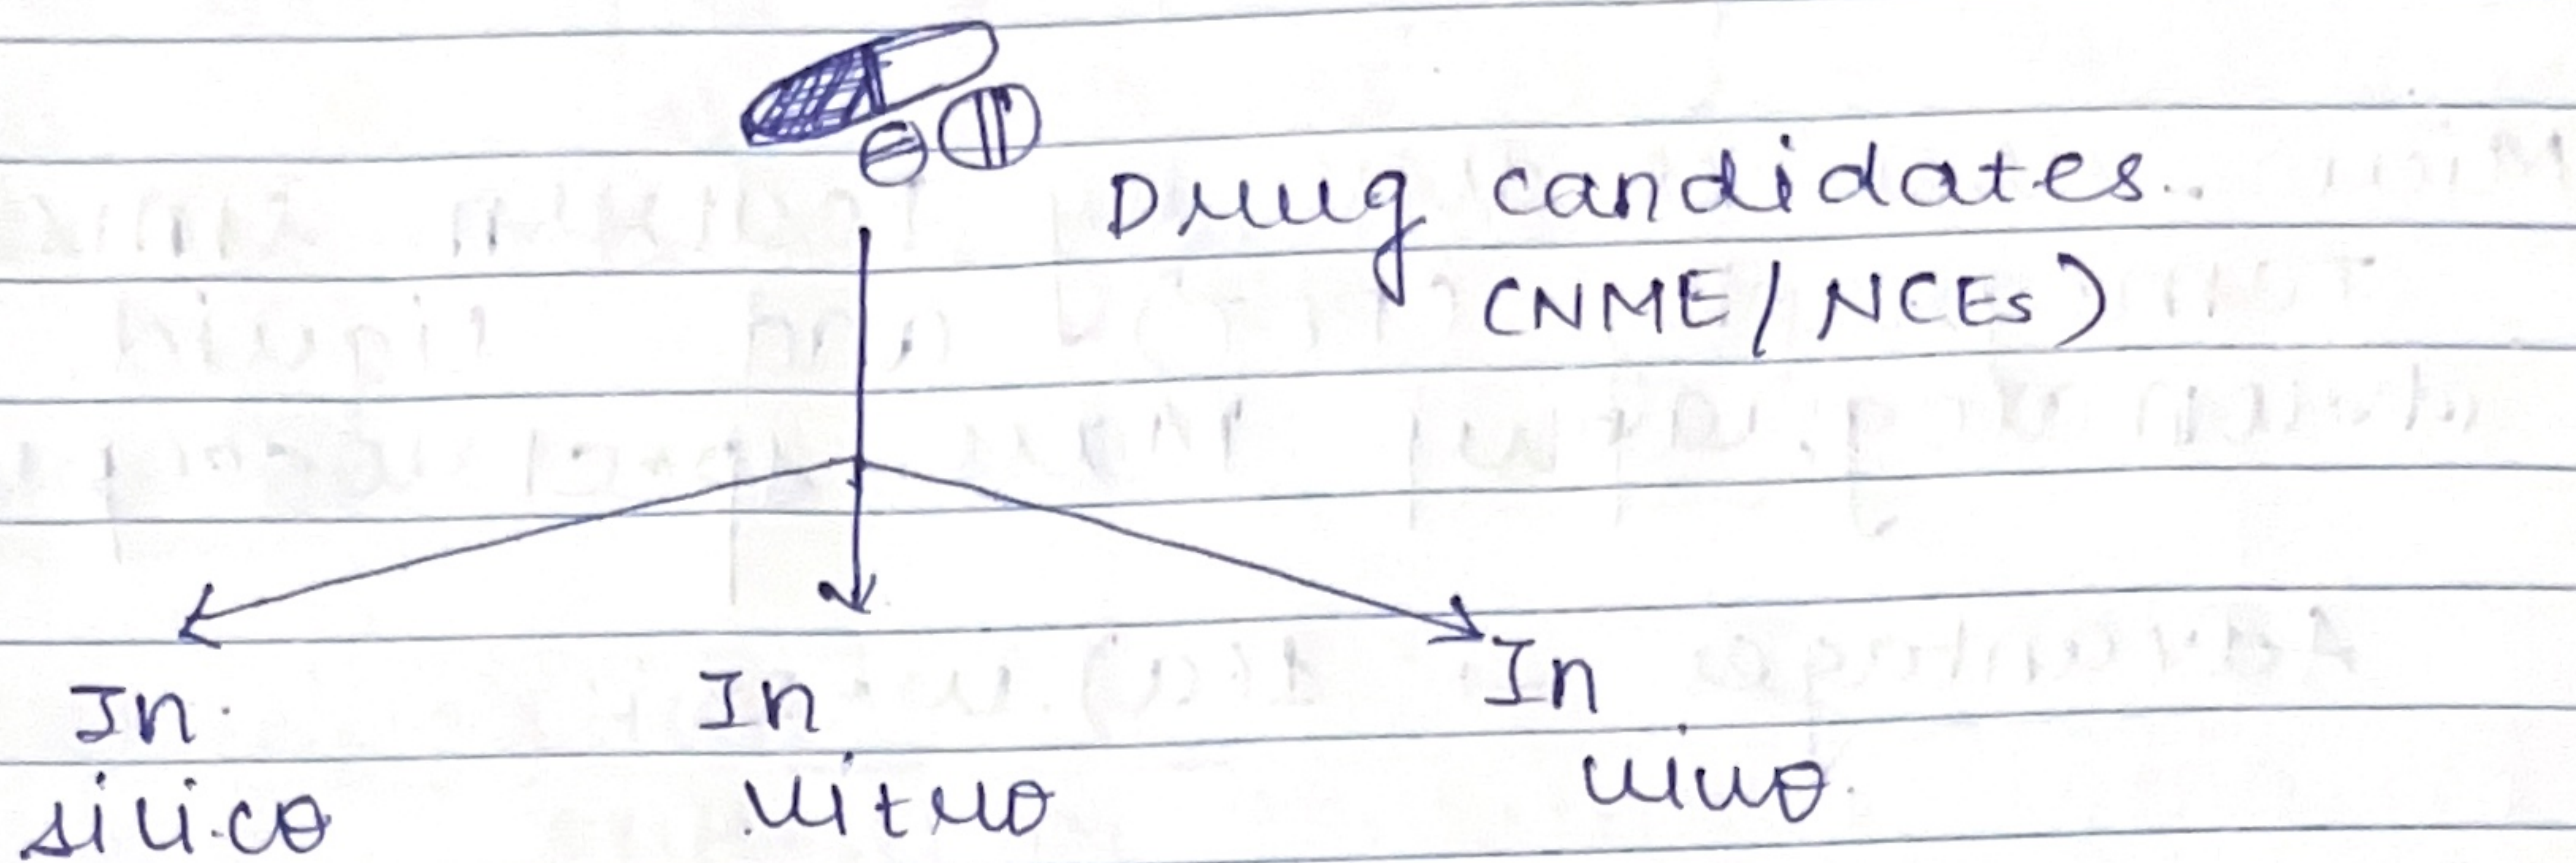 Drug candidates.
(NME/NCEs)
In
silico
In
vitro
In
vivo